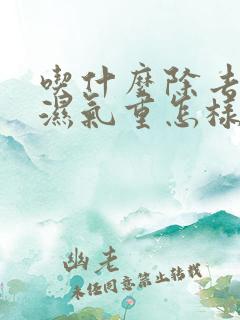 喫什麼除去
濕氣重怎樣
幽老
未經同意禁止轉載